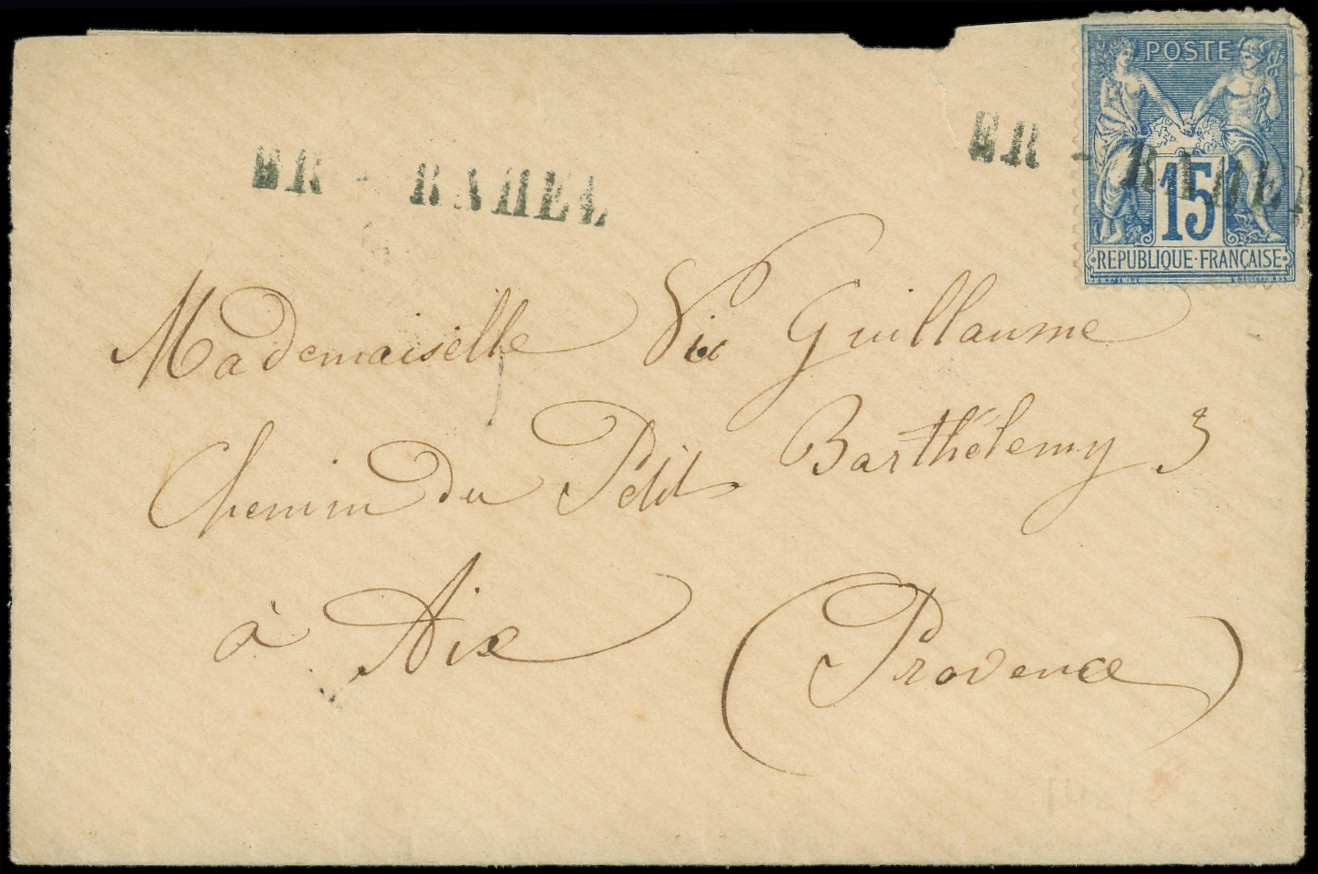 ER - RAHEL
ER - RAHEL
POSTE
15
REPUBLIQUE FRANÇAISE
Mademoiselle Vic Guillaume
Chemin du Petit Barthélemy 3
à Aix (Provence)